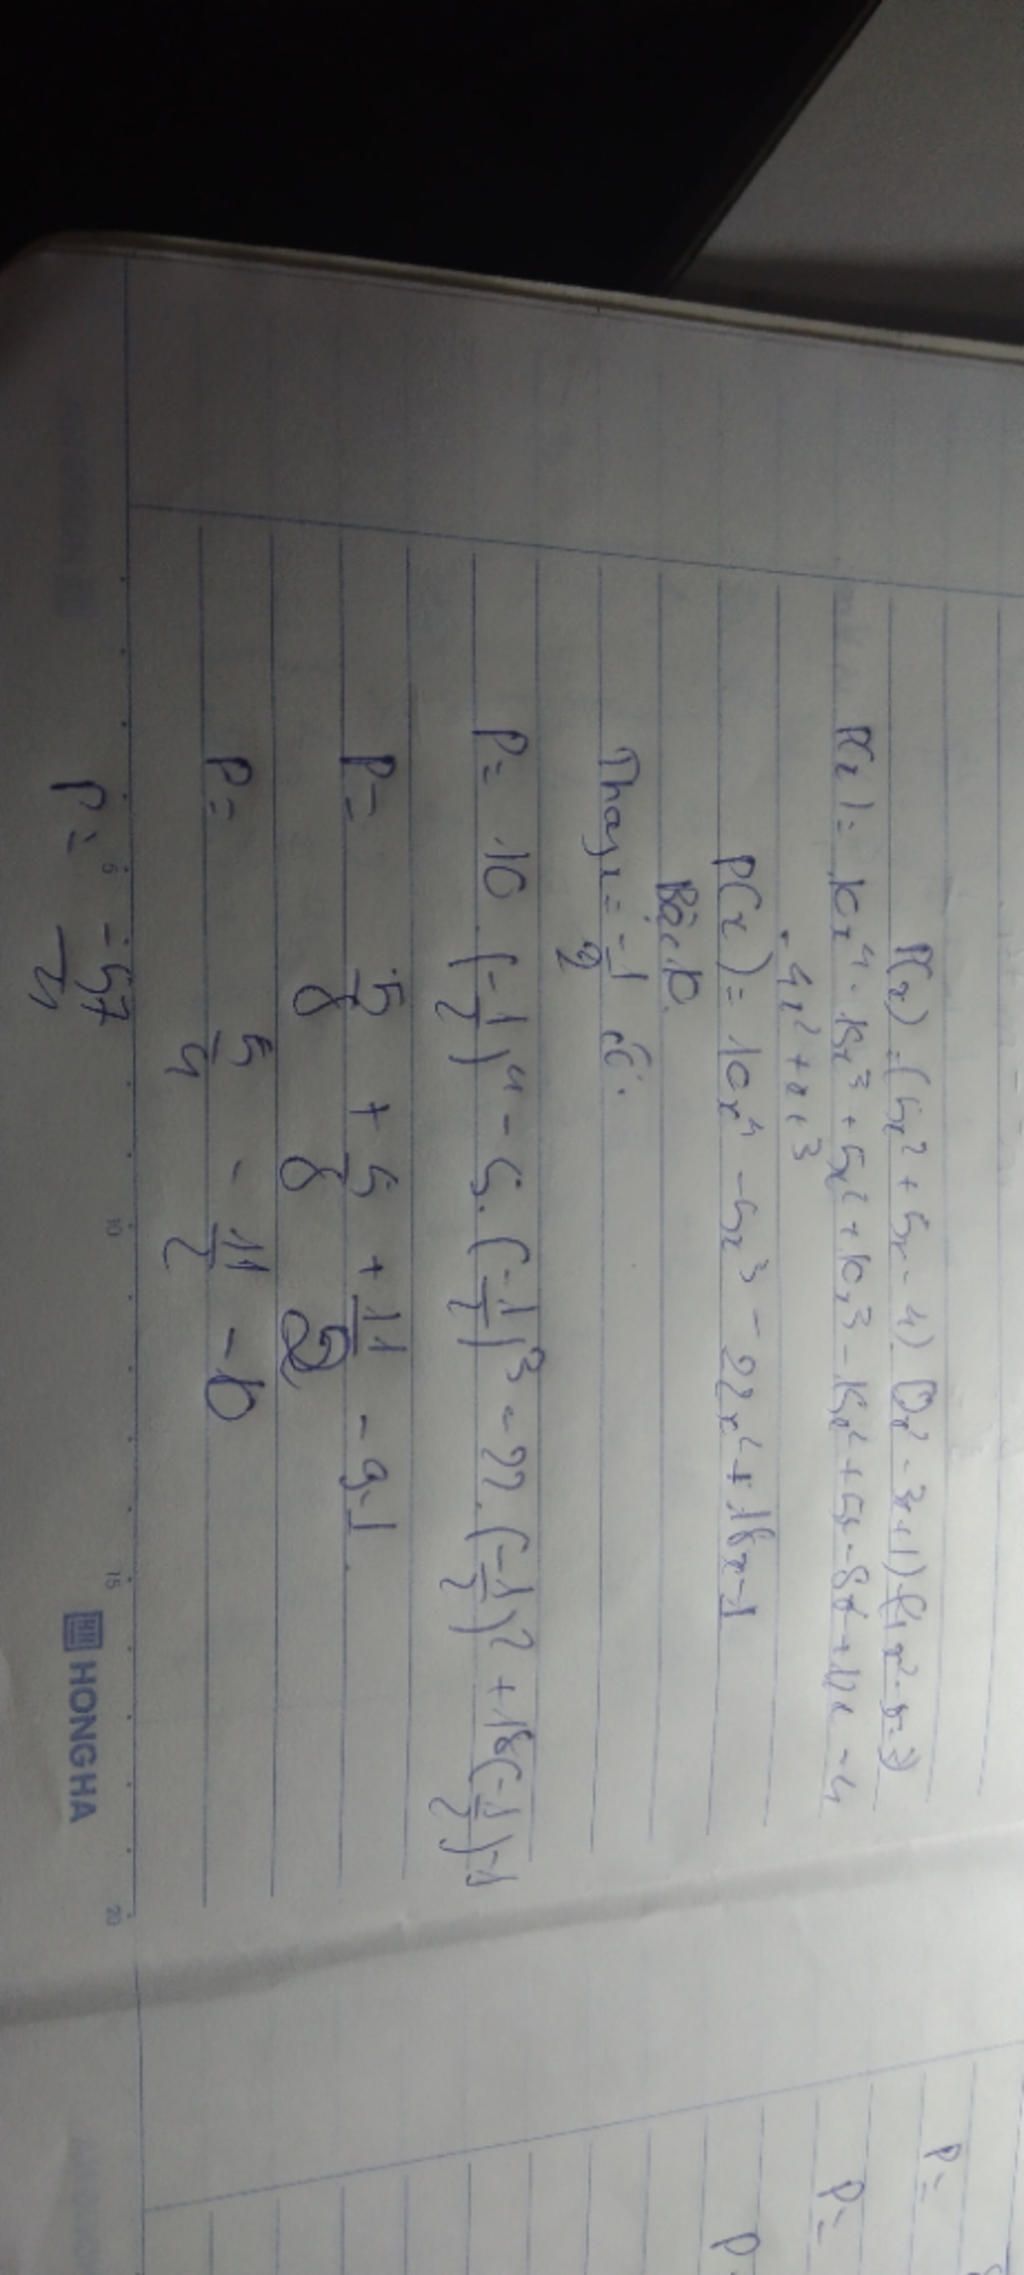 P(x) = (5x² + 5x - 4) (2x² - 3x + 1) - (4x² - x - 3)
P(x) = 10x⁴ - 15x³ + 5x² + 10x³ - 15x² + 5x - 8x² + 12x - 4
- 4x² + x + 3
P(x) = 10x⁴ - 5x³ - 22x² + 18x - 1
Bậc 10.
Thay x = -1/2 có.
P = 10 (-1/2)⁴ - 5. (-1/2)³ - 22. (-1/2)² + 18(-1/2) - 1
P = 5/8 + 5/8 + 11/2 - 9 - 1
P = 5/4 - 11/2 - 10
P = -57/4
5 10 15 20
HONG HA
P =
P =
P